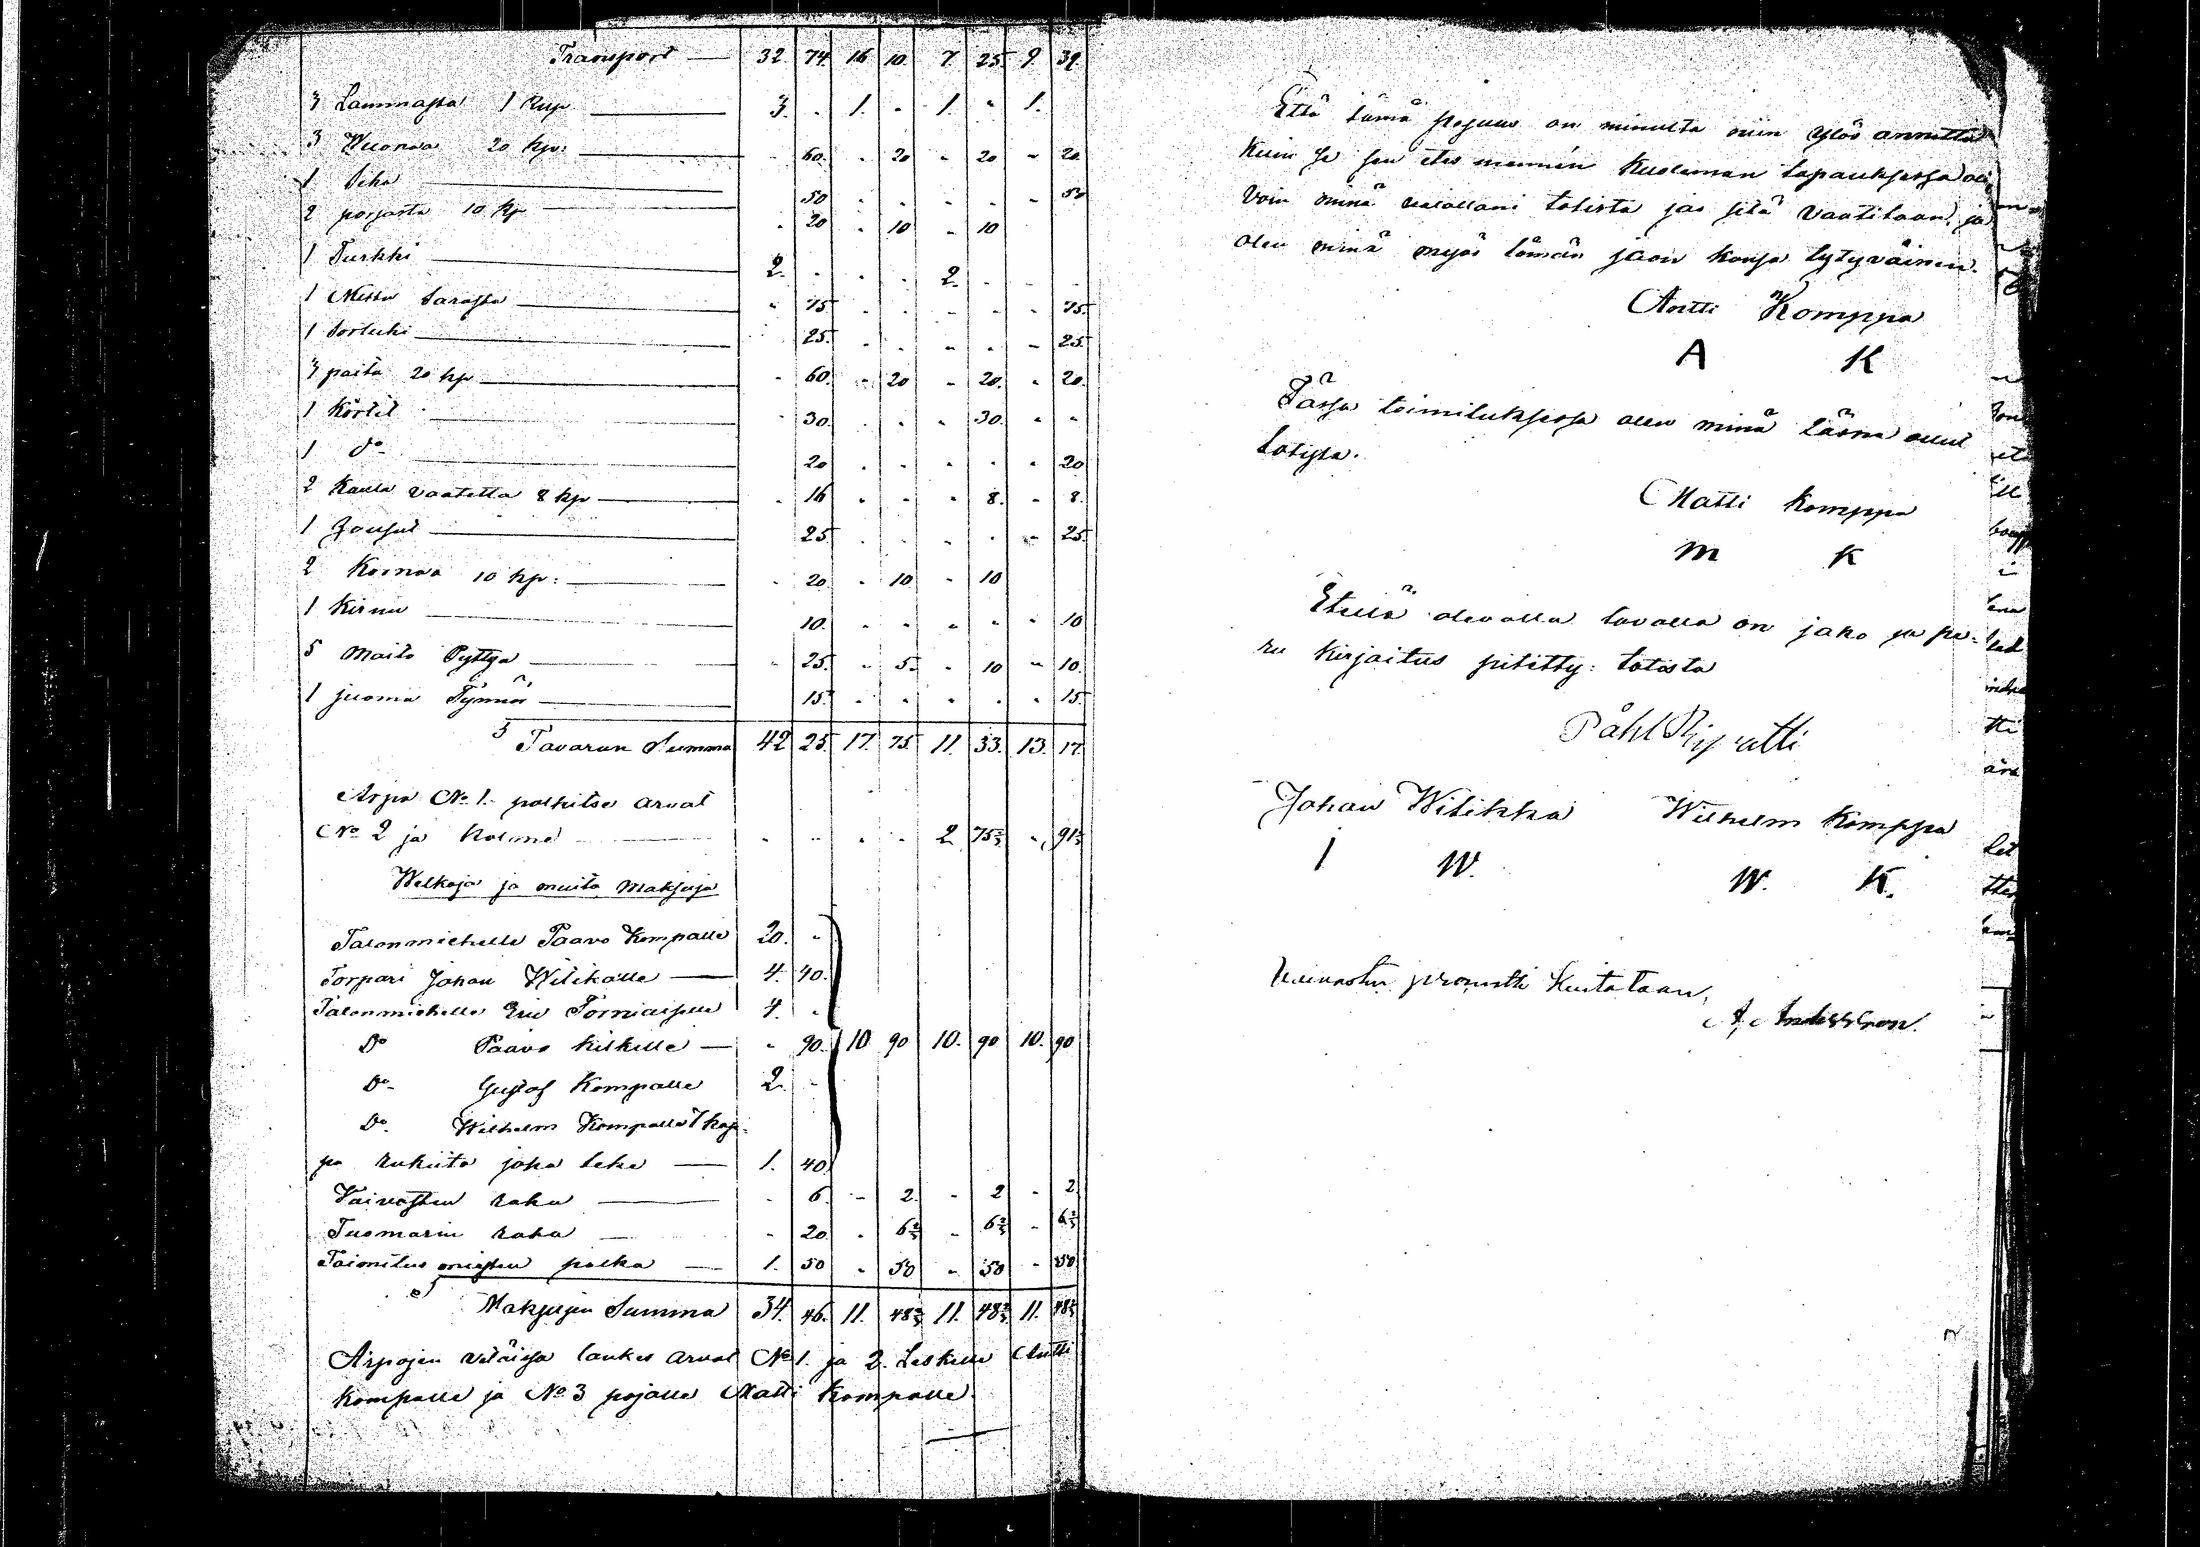 Transport — 32. 74. 16 10. 7. 25. 9. 39.
3 Lammasta 1 Rup. — 3. - 1. - 1. - 1.
3 Wuonaa 20 kp: — - 60. - 20 - 20 - 20
1 Sika — 50 - - - - - 50
2 porsasta 10 kp — - 20 - 10 - 10
1 Turkki — 2. - - - 2. - - -
1 Messu Sarassa — - 75 - - - - - 75.
1 Sortuki — 25. - - - - - 25.
3 paita 20 kp — - 60. - 20 - 20. - 20.
1 Körtit — - 30. - - - 30. - -
1 do — 20 - - - - - 20
2 Kaula vaatetta 8 kp — - 16 - - - 8. - 8.
1 Housut — 25 - - - - - 25
2 Kornaa 10 kp: — - 20. - 10 - 10
1 Kirnu — 10. - - - - - 10
5 Maito Pyttyä — - 25. - 5. - 10 - 10.
1 juoma Tynnör — 15. - - - - - 15
Tavaran Summa 42 25. 17. 75. 11. 33. 13. 17.
Arpa No 1. palkitse arvat
No 2 ja kolme — - - - - 2 75⅔ - 91⅔
Welkoja ja muita Maksuja
Talonmiehelle Paavo Kompalle 20. -
Torpari Johan Witikalle — 4. 40.
Talonmiehelle Eric Torniaiselle 4. -
Do Paavo kilkille — - 90. 10 90 10. 90 10. 90
Do Gustaf Kompalle 2. -
Do Wilhelm Kompalle 7 kap-
pa rukiita joka teke — 1. 40
Vaivasten raha — - 6. - 2. - 2 - 2
Tuomarin raha — - 20. - 6⅔ - 6⅔ - 6⅔
Toimitus miesten palka — 1. 50 - 50 - 50 - 50
Maksujen Summa 34. 46. 11. 48⅔ 11. 48⅔ 11. 48⅔
Arpojen vetäissä lankes arvat No 1. ja 2. Leskelle Antti
Kompalle ja No 3 pojalle Matti Kompalle.
Että tämä pesuus on minulta niin ylös annettu
Kuin se sen etes mennin Kuoleman tapauksessa oli
Voin minä valallani totista jos sitä vaatitaan, ja
olen minä myös tämän jaon kansa tytyväinen.
Antti Komppa
A K
Tässä toimituksessa olen minä läsnä ollut
totista.
Matti Komppa
M K
Etellä olevalla tavalla on jako ja pe-
ru kirjoitus pitetty: totista
Påhl
Johan Witikka Wilhelm Komppa
I W. W. K.
Vaivasten prosentti Kuitataan,
A. Andersson.